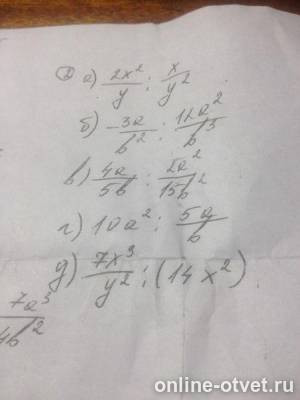 ② а) 2x²/y : x/y²
б) -3a/b² : 12a²/b³
в) 4a/5b : 2a²/15b²
г) 10a² : 5a/b
д) 7x³/y² : (14x²)
7a³/4b²
online-otvet.ru